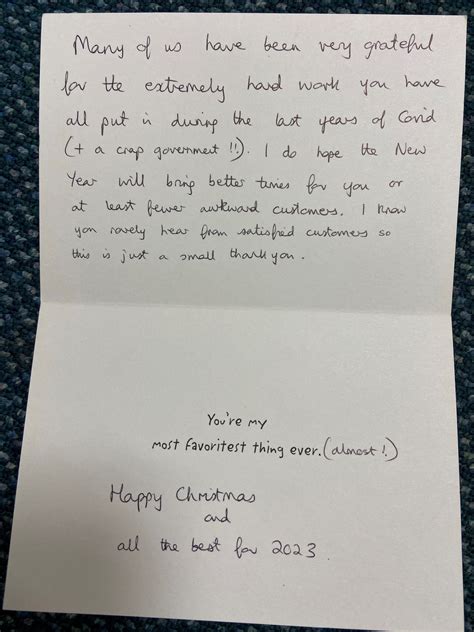 Many of us have been very grateful
for the extremely hard work you have
all put in during the last years of Covid
(+ a crap government !!). I do hope the New
Year will bring better times for you or
at least fewer awkward customers. I know
you rarely hear from satisfied customers so
this is just a small thank you.
You're my
most favoritest thing ever. (almost!)
Happy Christmas
and
all the best for 2023.